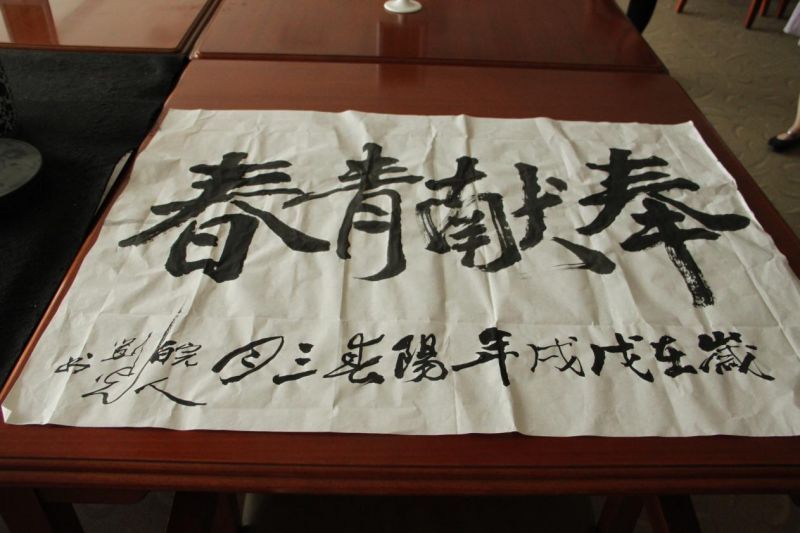 奉献青春
歲在戊戌年陽春三月皖人
书